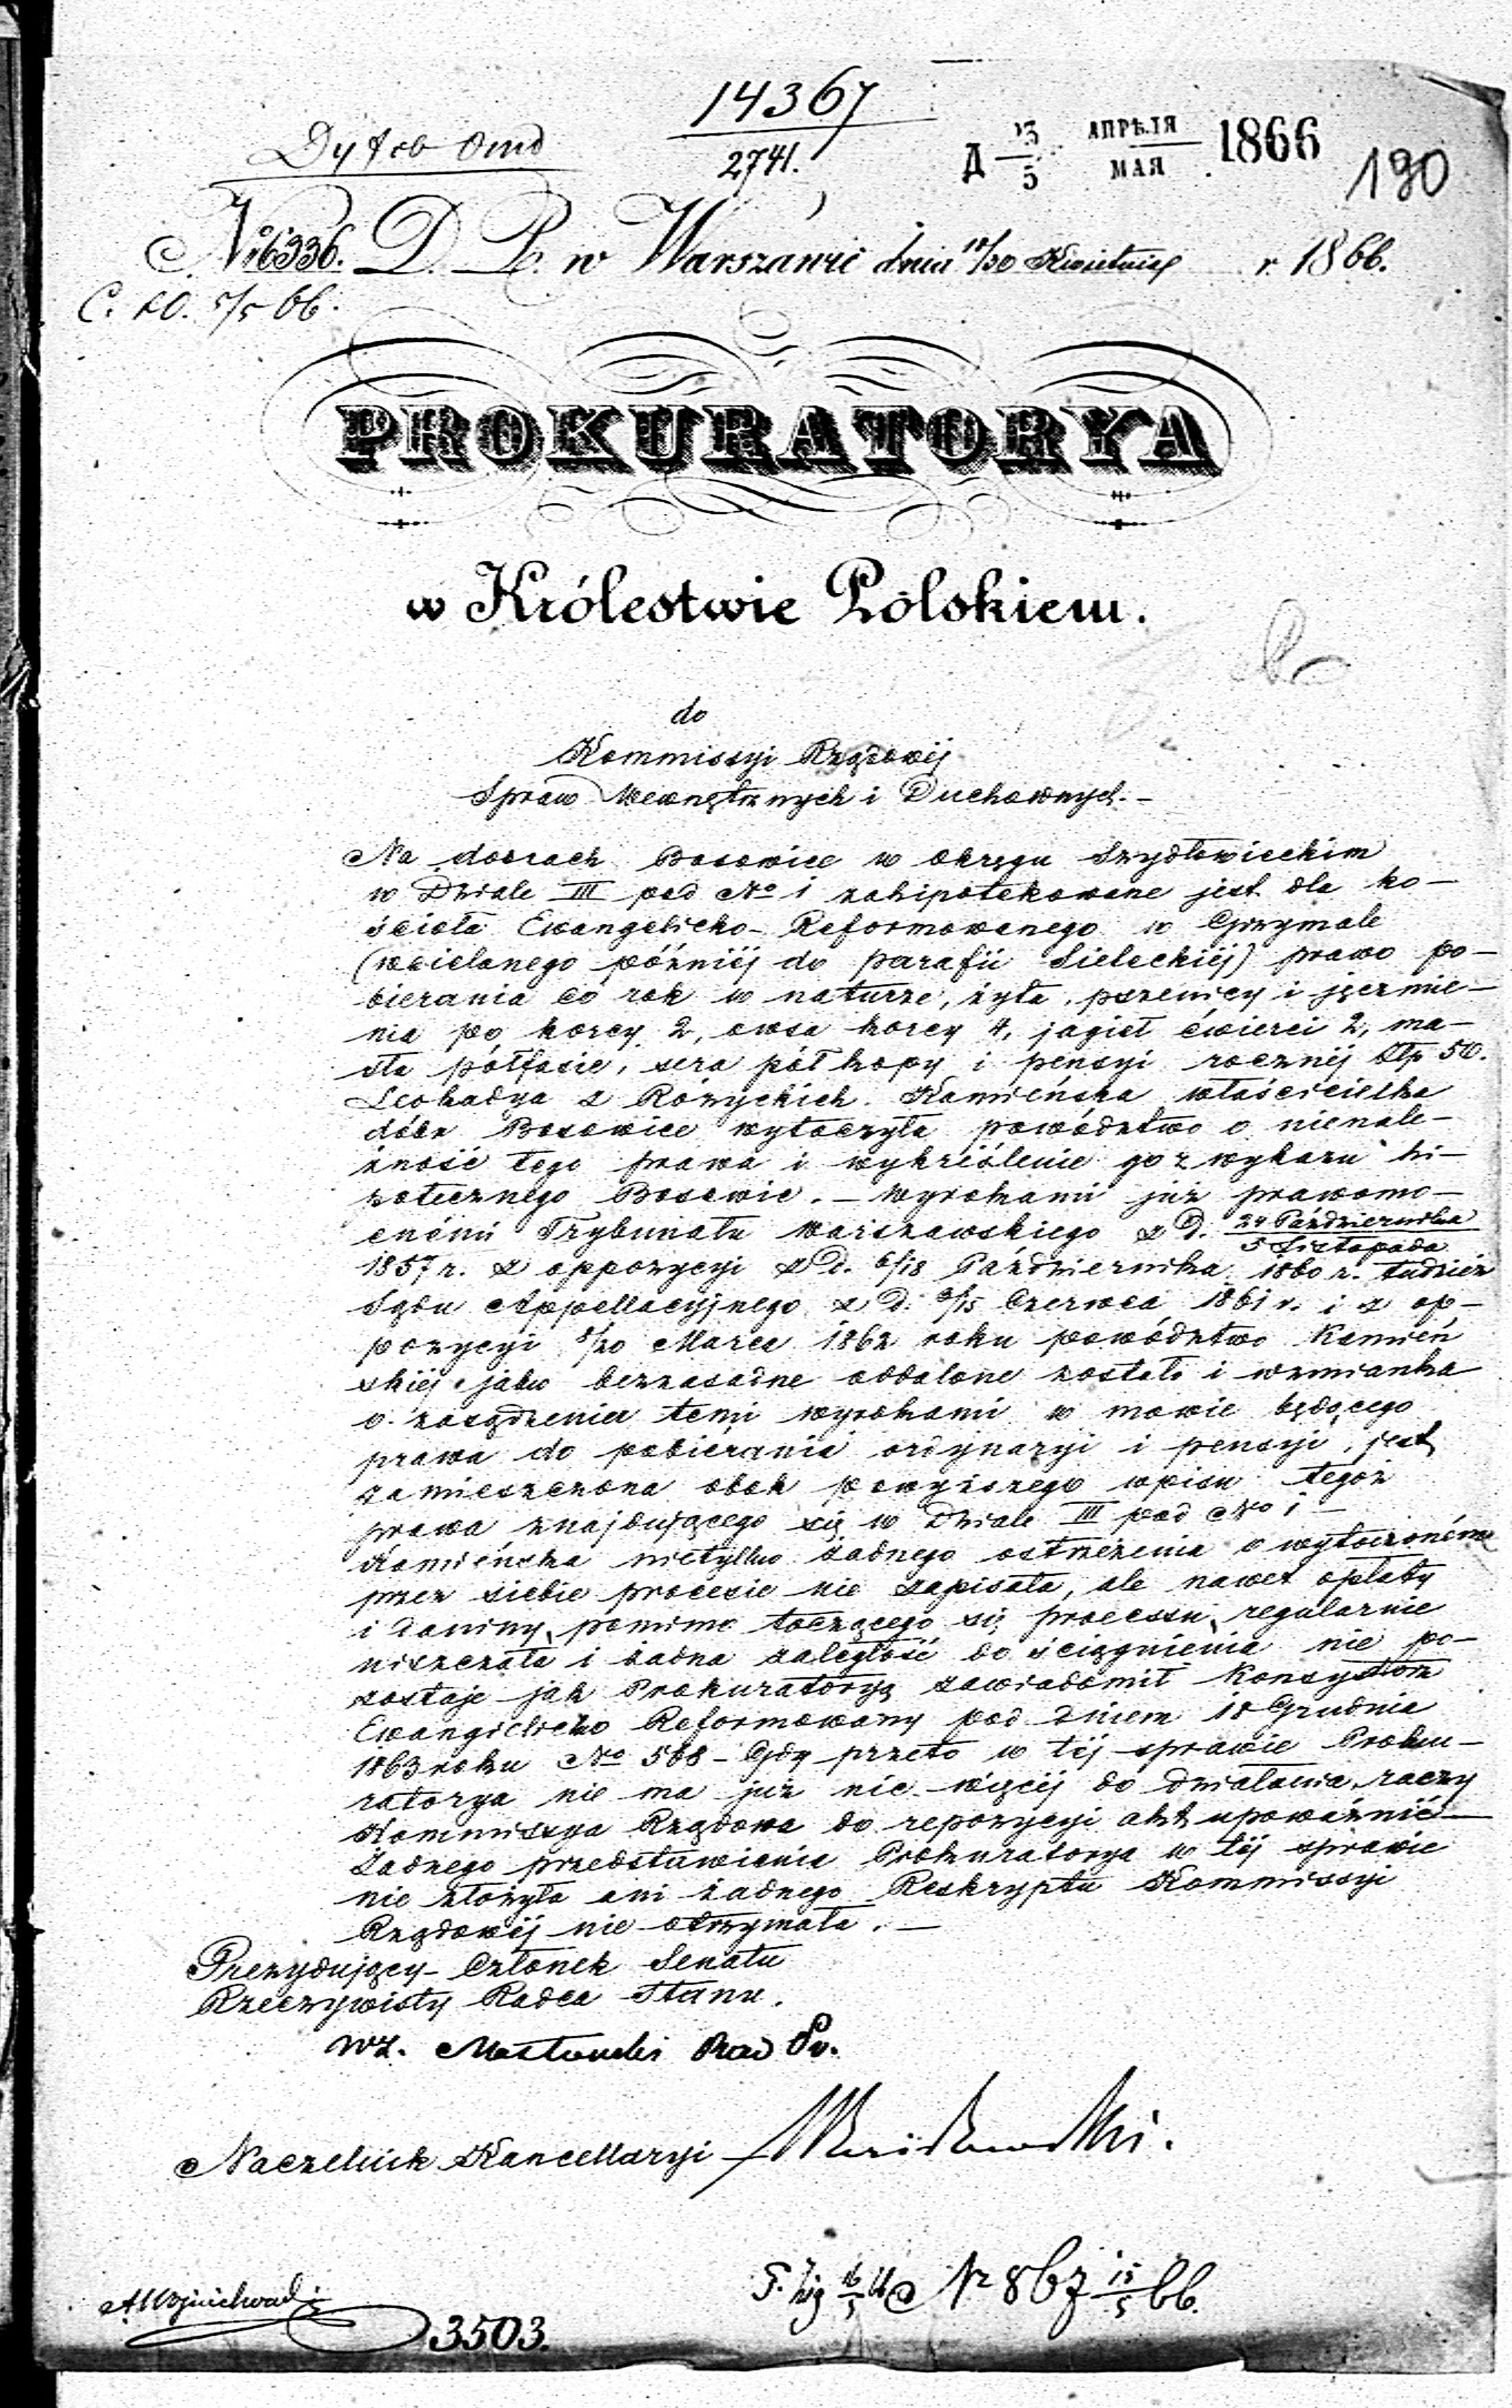 14367
2741.
Д 23/5 АПРѢЛЯ/МАЯ 1866
190
No 6336. D. P. w Warszawie dnia 18/30 Kwietnia r. 1866.
5/5 66.
PROKURATORYA
w Królestwie Polskiem.
do
Kommissyi Rządowéj
Spraw Wewnętrznych i Duchownych. –
Na dobrach Bosowice w okręgu Szydłowieckim
w Dziale III pod No 1 zahipotekowane jest dla ko–
ścioła Ewangelicko-Reformowanego w Grzymale
(wcielonego późniéj do parafii Sieleckiéj) prawo po–
bierania co rok w naturze, żyta, pszenicy i jęczmie–
nia po korcy 2, owsa korcy 4, jagieł ćwierci 2, ma–
sła półfasie, sera pół kopy i pensyi rocznéj Złp 50.
Leokadya z Różyckich Kamieńska właścicielka
dóbr Bosowice wytoczyła powództwo o nienale–
żność tego prawa i wykreślenie go z wykazu hi–
potecznego Bosowic. – Wyrokami już prawomo–
cnémi Trybunału Warszawskiego z D. 24 Października/5 Listopada
1857 r. z oppozycyi z D. 6/18 Października 1860 r. tudzież
Sądu Appellacyjnego z D. 3/15 Czerwca 1861 r. i z op–
pozycyi 8/20 Marca 1862 roku powództwo Kamień
skiéj jako bezzasadne oddalone zostało i wzmianka
o zasądzeniu temi wyrokami w mowie będącego
prawa do pobiérania ordynaryi i pensyi, jest
zamieszczona obok powyższego wpisu tegoż
prawa znajdującego się w Dziale III pod No 1 –
Kamieńska nietylko żadnego ostrzeżenia o wytoczoném
przez siebie procesie nie zapisała, ale nawet opłaty
i daniny, pomimo toczącego się processu, regularnie
uiszczała i żadna zaległość do ściągnienia nie po–
zostaje jak Prokuratoryą zawiadomił Konsystorz
Ewangielicko Reformowany pod dniem 18 Grudnia
1863 roku No 568 – Gdy przeto w téj sprawie Proku–
ratorya nie ma już nic więcéj do działania, raczy
Kommissya Rządowa do repozycyi akt upoważnić –
Żadnego przedstawienia Prokuratorya w téj sprawie
nie złożyła ani żadnego Reskryptu Kommissyi
Rządowéj nie otrzymała. –
Prezydujący – Członek Senatu
Rzeczywisty Radca Stanu.
wz.
Naczelnik Kancellaryi
No 867 15/5 66.
3503.